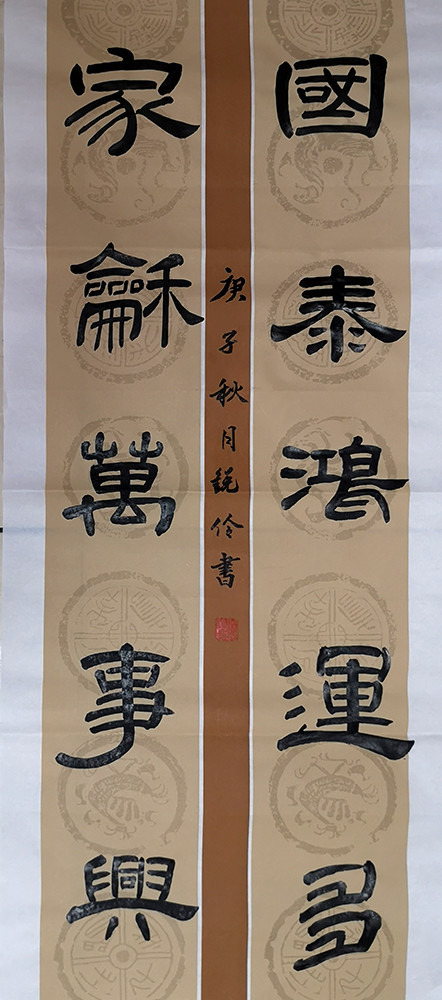 國泰鴻運多
家龢萬事興
庚子秋月銳伶書